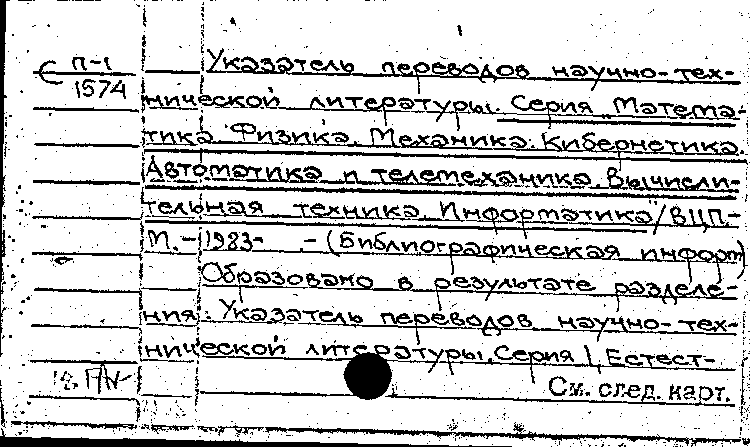 П-1
С 1574
Указатель переводов научно-тех-
нической литературы. Серия "Матема-
тика. Физика. Механика. Кибернетика.
Автоматика и телемеханика. Вычисли-
тельная техника. Информатика"/ВЦП.-
М.-1983- .-(Библиографическая информ)
Образовано в результате разделе-
ния: Указатель переводов научно-тех-
нической литературы. Серия 1, Естест-
См. след. карт.